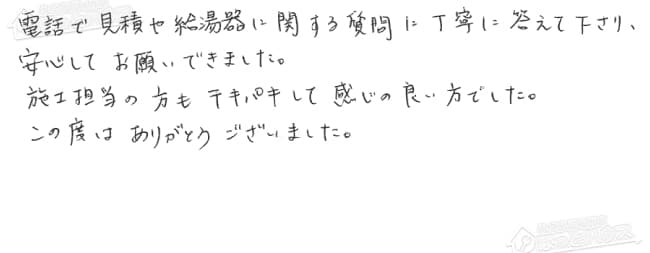 電話で見積や給湯器に関する質問に丁寧に答えて下さり、
安心してお願いできました。
施工担当の方もテキパキして感じの良い方でした。
この度はありがとうございました。